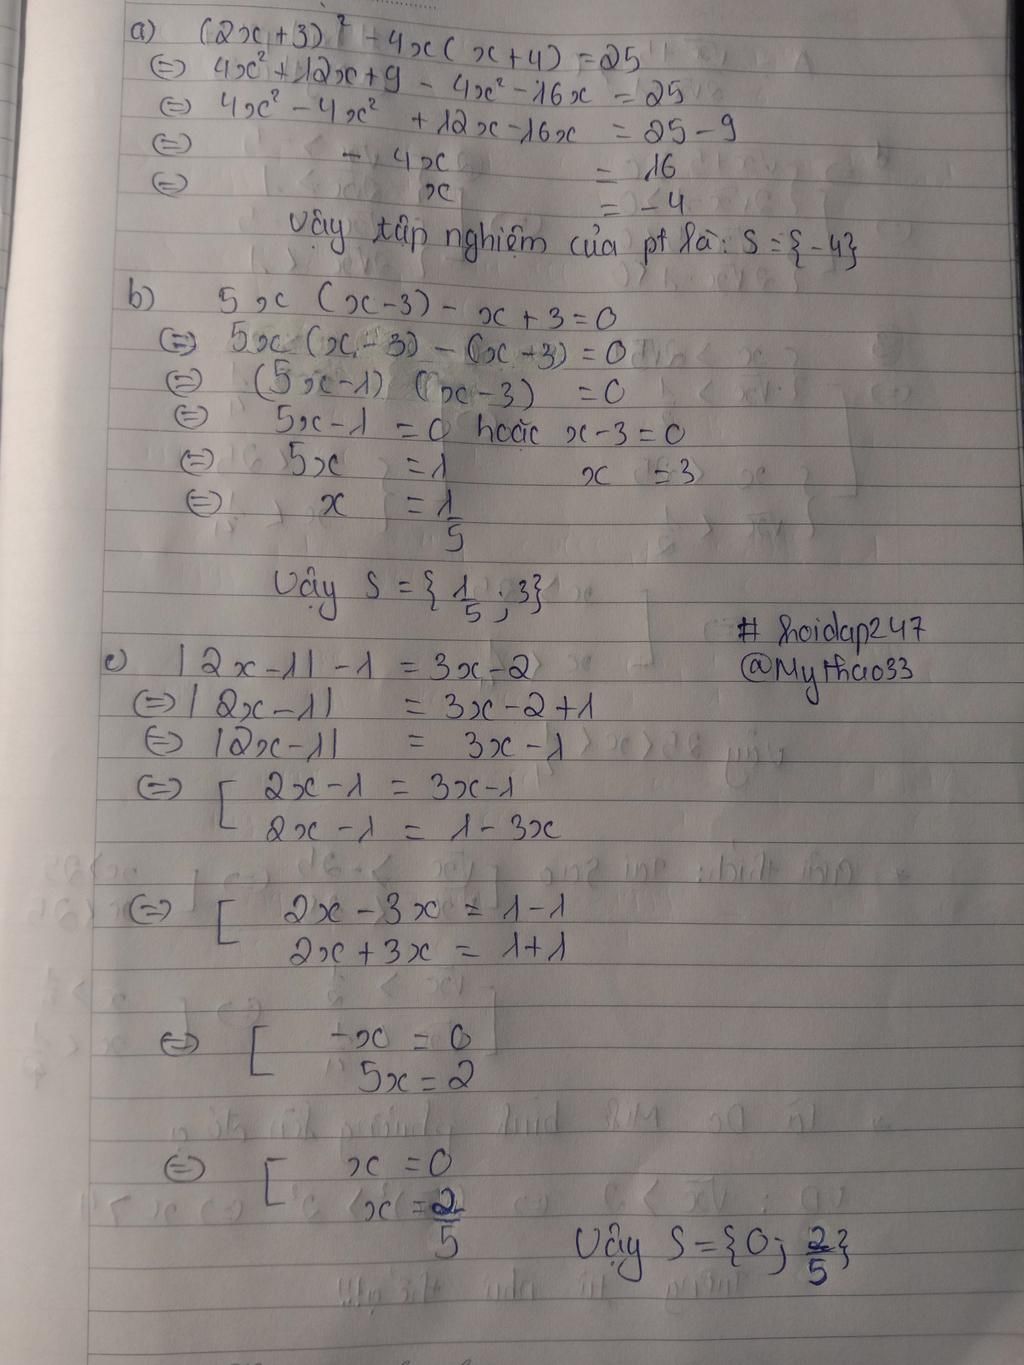 a) (2x+3)² - 4x(x+4) = 25
⇔ 4x² + 12x + 9 - 4x² - 16x = 25
⇔ 4x² - 4x² + 12x - 16x = 25 - 9
⇔ - 4x = 16
⇔ x = -4
Vậy tập nghiệm của pt là: S = {-4}
b) 5x (x-3) - x + 3 = 0
⇔ 5x (x-3) - (x-3) = 0
⇔ (5x-1) (x-3) = 0
⇔ 5x-1 = 0 hoặc x-3 = 0
⇔ 5x = 1 x = 3
⇔ x = 1/5
Vậy S = {1/5 ; 3}
# hoidap247
@Mythao33
c) |2x-1| - 1 = 3x-2
⇔ |2x-1| = 3x-2+1
⇔ |2x-1| = 3x-1
⇔ [ 2x-1 = 3x-1
2x-1 = 1-3x
⇔ [ 2x-3x = 1-1
2x+3x = 1+1
⇔ [ -x = 0
5x = 2
⇔ [ x = 0
x = 2/5
Vậy S = {0; 2/5}